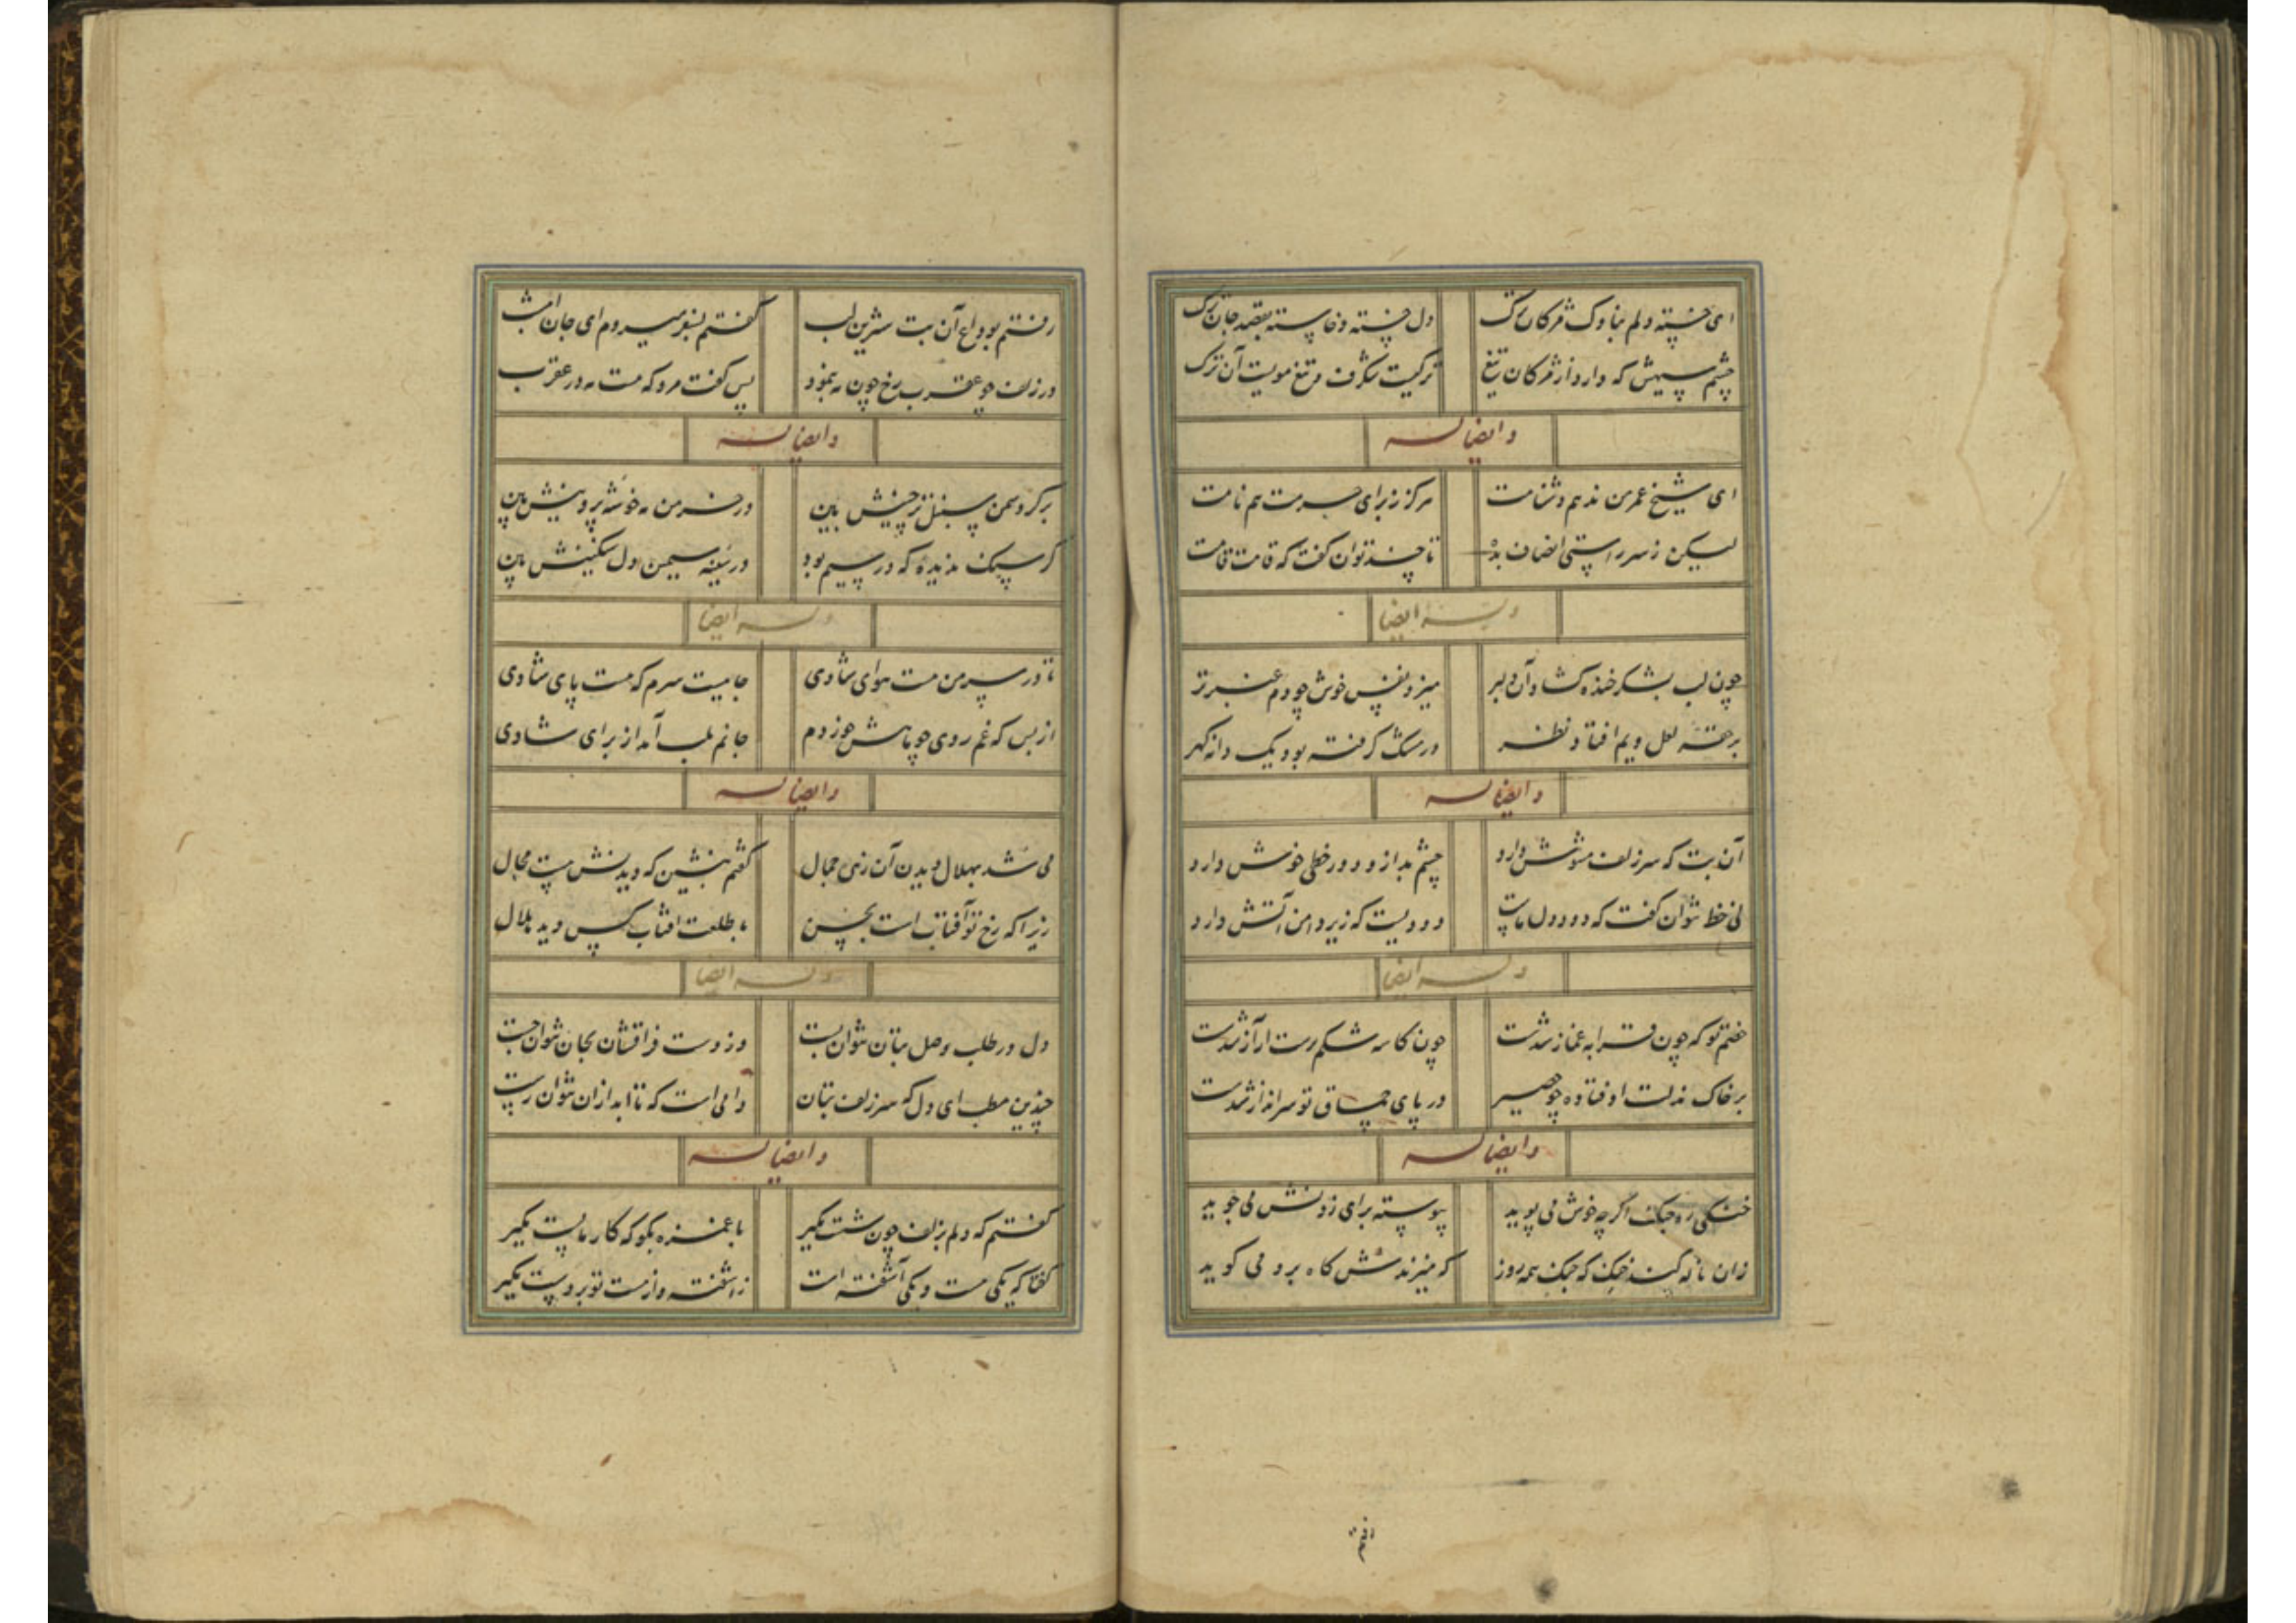 ای خسته دلم بناوک مژکان ترک دل خسته و خاسته بقصد جان ترک
چشم سیهش که دارد از مژکان تیغ ترکیست شکرف و تیغ مویست آن ترک
وایضا له
ای شیخ عمر من ندهم دشنامت هرکز ز برای حرمت هم نامت
لیکن ز سر راستی انصاف بده تا چند توان کفت که قامت قامت
وله ایضا
چون لب بشکر خنده کشاد آن دلبر میزد نفس خوش چو دم عنبر تر
بر حقه لعل ویم افتاد نظر در مشک کرفته بود یک دانه کهر
وایضا له
آن بت که سر زلف مشوش دارد چشم بد ازو دور خطی خوش دارد
نی خط نتوان کفت که دود دل ماست دودیست که زیر دامن آتش دارد
وله ایضا
خصم تو که چون قرابه غماز شدست چون کاسه شکم پرست از آز شدست
بر خاک مذلت اوفتاده چو حصیر در پای چماق تو سرانداز شدست
وایضا له
خنکی ره جنک اکر چه خوش می پوید پیوسته برای زدنش می جوید
زان ناله کند خنک که خنک همه روز که میزندش کاه برو می کوید
رفتم
رفتم بوداع آن بت شیرین لب کفتم بسفر میروم ای جان امشب
در زلف چو عقرب رخ چون مه بنمود پس کفت مرو که هست مه در عقرب
وایضا له
بر کرد سمن سنبل پر چینش بین در خرمن مه خوشه پروینش بین
کر سنک ندیده که در سیم بود در سینه سیمین دل سنکینش بین
وله ایضا
تا در سر من هست هوای شادی جامیست سرم که هست پای شادی
از بس که غم روی چو ماهش خوردم جانم بلب آمد از برای شادی
وایضا له
می شد بهلال دیدن آن زین جمال کفتم بنشین که دیدنش هست محال
زیرا که رخ تو آفتاب است بحسن با طلعت افتاب کس دید هلال
وله ایضا
دل در طلب وصل بتان نتوان بست وز دست فراقشان بجان نتوان جست
چندین مطلب ای دل که سر زلف بتان دامی است که تا ابد از ان نتوان رست
وایضا له
کفتم که دلم بزلف چون شست مکیر با غمزه بکو که کار ما پست مکیر
کفتا که یکی مست و یکی آشفته است ز اشفته و از مست تو بر دست مکیر